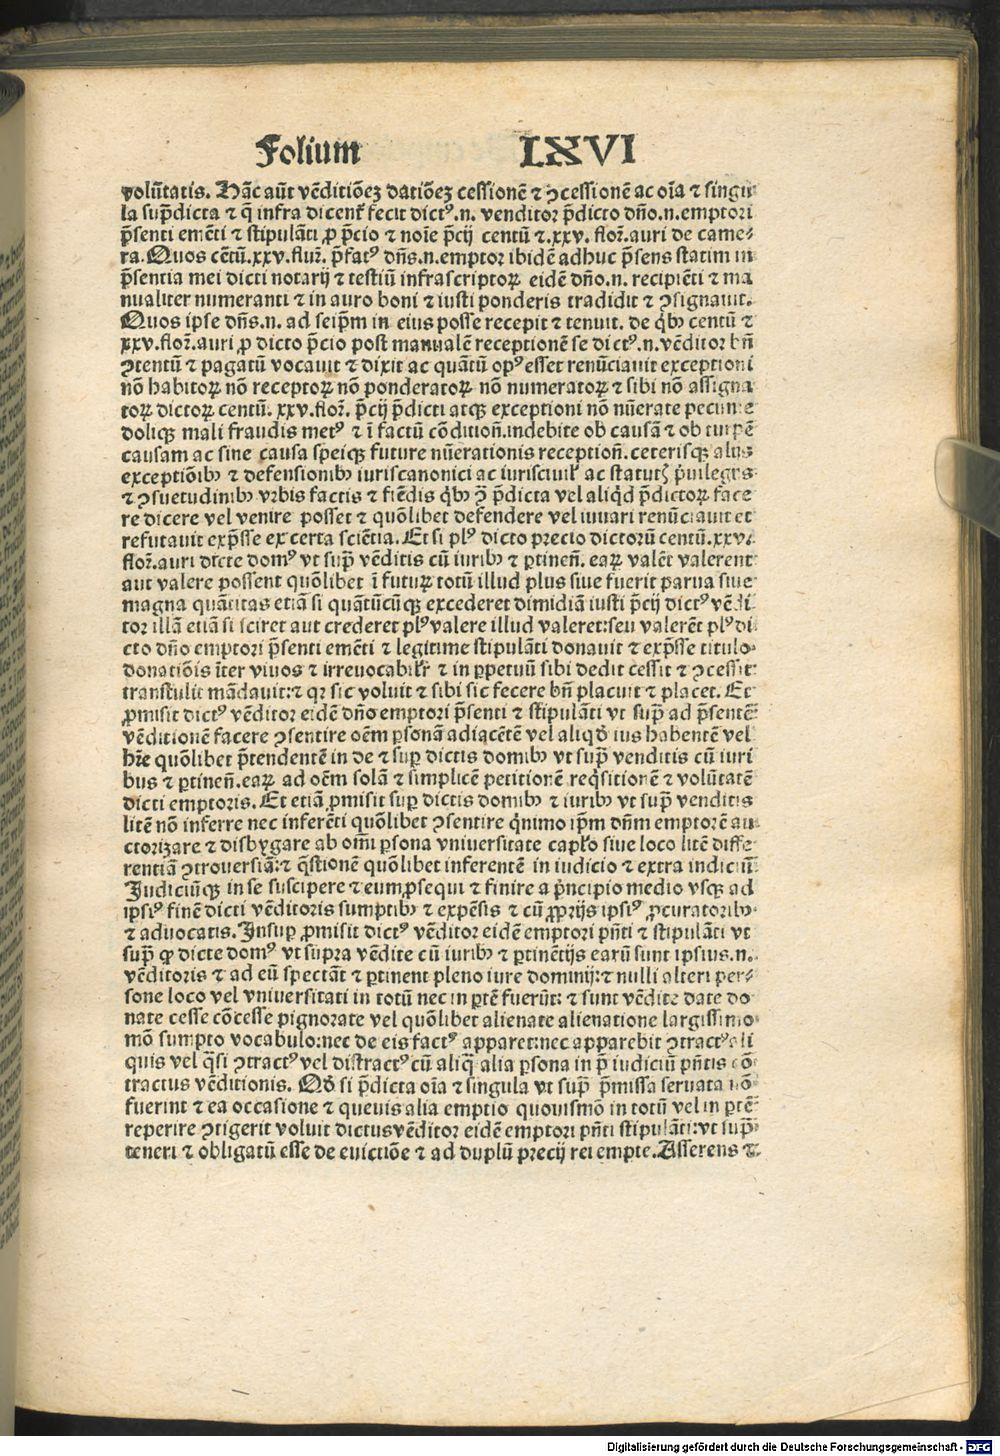 Folium LXVI
volūtatis. Hāc aūt vēditiōeʒ datiōeʒ cessionē ⁊ ꝯcessionē ac oīa ⁊ singu
la sup̄dicta ⁊ q̄ infra dicenť fecit dictꝰ.n. venditor p̄dicto dn̄o.n.emptori
p̄senti emēti ⁊ stipulāti ꝓ p̄cio ⁊ noīe p̄cij centū ⁊.xxv. flor̄.auri de came⸗
ra. Quos cētū.xxv.flor̄. p̄fatꝰ dn̄s.n.emptor ibidē adhuc p̄sens statim in
p̄sentia mei dicti notarij ⁊ testiū infrascriptoꝝ eidē dn̄o.n. recipiēti ⁊ ma
nualiter numeranti ⁊ in auro boni ⁊ iusti ponderis tradidit ⁊ ꝯsignauit.
Quos ipse dn̄s.n. ad seip̄m in eius posse recepit ⁊ tenuit. de q̇bꝫ centū ⁊
xxv.flor̄.auri ꝓ dicto p̄cio post manualē receptionē se dictꝰ.n. vēditor bn̄
ꝯtentū ⁊ pagatū vocauit ⁊ dixit ac quātū opꝰ esset renūciauit exceptioni
nō habitoꝝ nō receptoꝝ nō ponderatoꝝ nō numeratoꝝ ⁊ sibi nō assigna
toꝝ dictoꝝ centū. xxv.flor̄. p̄cij p̄dicti atqꝫ exceptioni nō nūerate pecunie
doliqꝫ mali fraudis metꝰ ⁊ ī factū cōditioñ.indebite ob causā ⁊ ob turpē
causam ac sine causa speiqꝫ future nūerationis receptioñ. ceterisqꝫ alijs
exceptiōibꝫ ⁊ defensionibꝫ iuriscanonici ac iurisciuiľ ac statutꝭ p̄uilegijs
⁊ ꝯsuetudinibꝫ vrbis factis ⁊ fiēdis q̇bꝫ ꝯ̄ p̄dicta vel aliq̇d p̄dictoꝝ face
re dicere vel venire posset ⁊ quōlibet defendere vel iuuari renūciauit et
refutauit exp̄sse ex certa sciētia. Et si plꝰ dicto precio dictorū centū.xxv.
flor̄.auri dicte domꝰ vt sup̄ vēditis cū iuribꝫ ⁊ ꝑtineñ. eaꝝ valēt valerent
aut valere possent quōlibet ī futuꝝ totū illud plus siue fuerit parua siue
magna quātitas etiā si quātūcūqꝫ excederet dimidiā iusti p̄cij dictꝰ vēdi
tor illā etiā si sciret aut crederet plꝰ valere illud valeret:seu valerēt plꝰ di
cto dn̄o emptori p̄senti emēti ⁊ legitime stipulāti donauit ⁊ exp̄sse titulo
donatiōis īter viuos ⁊ irreuocabiľr ⁊ in ꝑpetuū sibi dedit cessit ⁊ ꝯcessit
transtulit mādauit:⁊ qꝛ sic voluit ⁊ sibi sic fecere bn̄ placuit ⁊ placet. Et
ꝓmisit dictꝰ vēditor eidē dn̄o emptori p̄senti ⁊ stipulāti vt sup̄ ad p̄sentē
vēditionē facere ꝯsentire oēm ꝑsonā adiacētē vel aliqd̄ ius habentē vel
hr̄e quōlibet p̄tendentē in de ⁊ suꝑ dictis domibꝫ vt sup̄ venditis cū iuri
bus ⁊ ꝑtineñ.eaꝝ ad oēm solā ⁊ simplicē petitionē reqͥsitionē ⁊ volūtatē
dicti emptoris. Et etiā ꝓmisit suꝑ dictis domibꝫ ⁊ iuribꝫ vt sup̄ venditis
litē nō inferre nec inferēti quōlibet ꝯsentire qͥnimo ip̄m dn̄m emptorē au
ctorizare ⁊ disbrygare ab omī ꝑsona vniuersitate capľo siue loco litē diffe
rentiā ꝯtrouersiā:⁊ q̄stionē quōlibet inferentē in iudicio ⁊ extra iudiciū
Judiciūqꝫ in se suscipere ⁊ eum ꝓsequi ⁊ finire a pͥncipio medio vsqꝫ ad
ipsiꝰ finē dicti vēditoris sumptibꝫ ⁊ expēsis ⁊ cū ꝓprijs ipsiꝰ ꝓcuratoribꝫ
⁊ aduocatis. Insuꝑ ꝓmisit dictꝰ vēditor eidē emptori pn̄ti ⁊ stipulāti vt
sup̄ ꝙ dicte domꝰ vt supra vēdite cū iuribꝫ ⁊ ꝑtinētijs earū sunt ipsius.n.
vēditoris ⁊ ad eū spectāt ⁊ ꝑtinent pleno iure dominij:⁊ nulli alteri per⸗
sone loco vel vniuersitati in totū nec in ꝑtē fuerūt: ⁊ sunt vēdite date do
nate cesse cōcesse pignorate vel quōlibet alienate alienatione largissimo
mō sumpto vocabulo:nec de eis factꝰ apparet:nec apparebit ꝯtractꝰ ali
quis vel q̄si ꝯtractꝰ vel distractꝰ cū aliq̄ alia ꝑsona in p̄ iudiciū pn̄tis cō
tractus vēditionis. Qd̄ si p̄dicta oīa ⁊ singula vt sup̄ p̄missa seruata nō
fuerint ⁊ ea occasione ⁊ queuis alia emptio quouismō in totū vel in ꝑtē
reperire ꝯtigerit voluit dictus vēditor eidē emptori pn̄ti stipulāti:vt sup̄
teneri ⁊ obligatū esse de euictiōe ⁊ ad duplū precij rei empte. Asserens ⁊
Digitalisierung gefördert durch die Deutsche Forschungsgemeinschaft - DFG